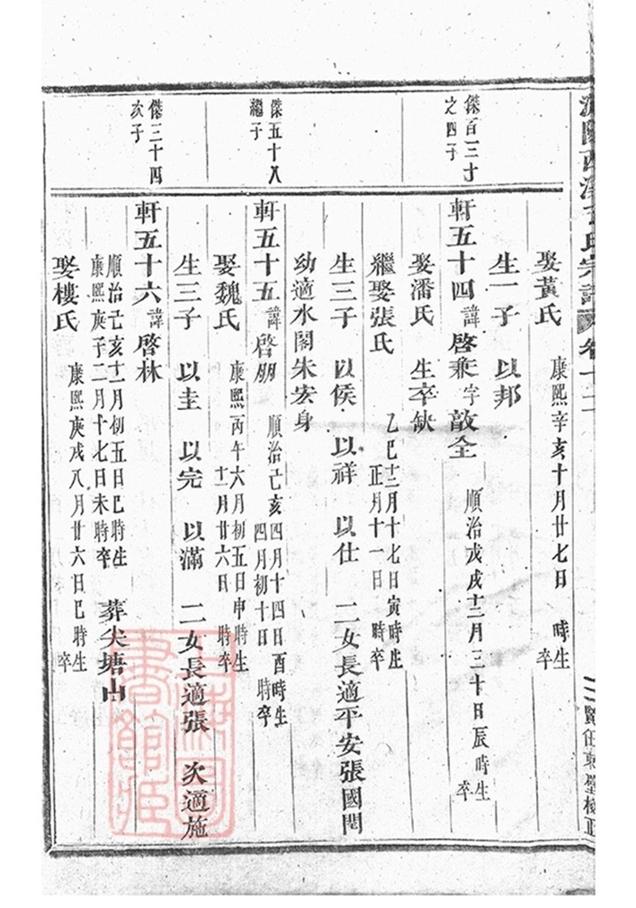 氏宗譜 卷十二
娶黃氏 康熙辛亥十月廿七日 時生 卒
生一子 以邦
傑百三十之四子
軒五十四 諱啓乘 字敨全 順治戊戌十二月三十日辰時生 卒
娶潘氏 生卒缺
繼娶張氏 乙巳十二月十七日寅時生 正月十一日 時卒
生三子 以侯 以祥 以仕 二女長適平安張國閏
幼適水閣朱宏身
傑五十八繼子
軒五十五 諱啓朋 順治己亥四月十四日酉時生 四月初十日 時卒
娶魏氏 康熙丙午六月初五日申時生 十一月廿六日 時卒
生三子 以圭 以完 以滿 二女長適張 次適施
傑三十四次子
軒五十六 諱啓林
順治己亥十一月初五日巳時生 康熙庚子二月十七日未時卒 葬尖塘山
娶樓氏 康熙庚戌八月廿六日巳時生 卒